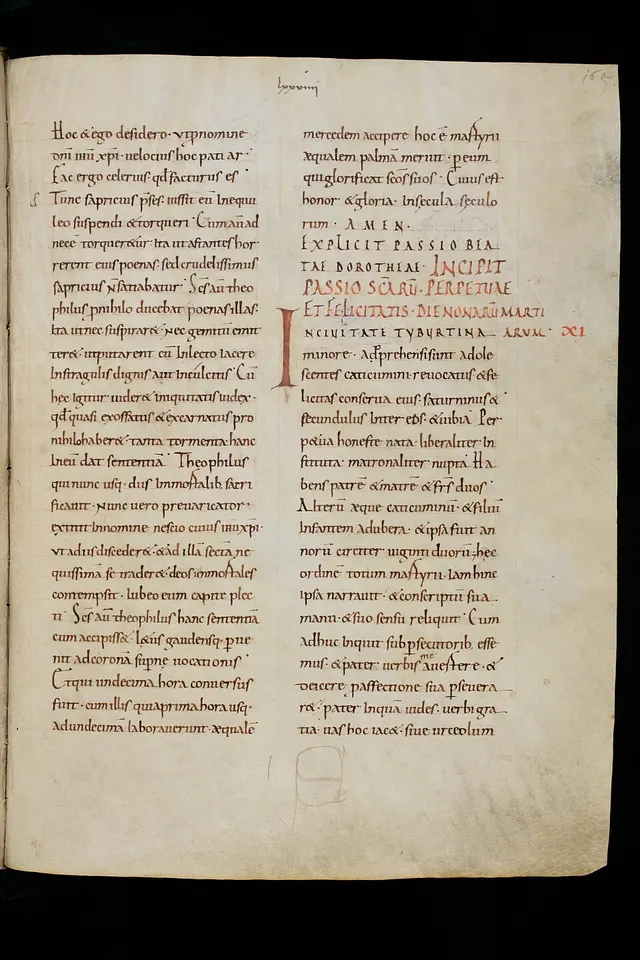 lxxviiii
Hoc & ego desidero · ut p nomine
dn̄i mi xp̄i · uelocius hoc patiar ·
Fac ergo celerius · qd facturus es ·
Tunc sapricius p̄ses · iussit eū in equu
leo suspendi & torqueri · Cum au ad
nece torquer&ur · Ita ut astantes hor
rerent eius poenas · sed crudelissimus
sapricius n̄ satiabatur · Sc̄s aū theo
philus pnihilo ducebat poenas illas ·
Ita ut nec suspirar& · Nec gemitū emit
ter& · ut putarent eū In lecto iacere
In stragulis dignis aut In culcitis · Cū
hec igitur uider& iniquitatis iudex ·
qd quasi exossatus & excarnatus pro
nihilo haber& · tanta tormenta · hanc
In eū dat sententiā · Theophilus
qui nunc usq · diis Inmortalib · sacri
ficauit · Nunc uero preuaricator ·
extitit In nomine nescio cuius ihu xp̄i ·
ut a diis disceder& · & ad illā sectā ne
quissimā se trader& · & deos inmortales
contempsit · Iubeo eum capite plec
ti · Sc̄s aū theophilus hanc sententiā
cum accipiss& · l&us gaudensq · p ue
nit ad coronā supne uocationis ·
Et qui undecima hora conuersus
fuit · cum illis qui a prima hora usq ·
ad undecimā laborauerunt · æquale
mercedem accipere hoc ē martyrii
æqualem palmā meruit · p eum
qui glorificat sc̄os suos · Cuius est
honor & gloria · In secula seculo
rum · AMEN ·
EXPLICIT PASSIO BEA
TAE DOROTHEAE · INCIPIT
PASSIO SC̄ARŪ · PERPETUAE
ET FELICITATIS · DIE NONARŪ MARTI
IN CIUITATE TYBURTINA ARUM · XI
minore · Adprehensi sunt adole
scentes caticumini · reuocatus & fe
licitas conserua eius · saturninus &
secundulus · Inter eos · & uibia Per
p&ua honeste nata · liberaliter In
stituta · matronaliter nupta · Ha
bens patrē & matrē & frs̄ duos ·
Alterū æque caticuminū · & filiū
Infantem ad ubera · & ipsa fuit an
norū circiter uiginti duorū · hec
ordinē totum martyrii · Iam hinc
ipsa narrauit · & conscriptū sua
manu · & suo sensu reliquit · Cum
adhuc Inquit sub psecutorib · esse
mus · & pater · uerbis me auertere · &
deicere p affectione sua pseuera
r& · pater Inquā uides · uerbi gra
tia · uas hoc iac& · siue urceolum